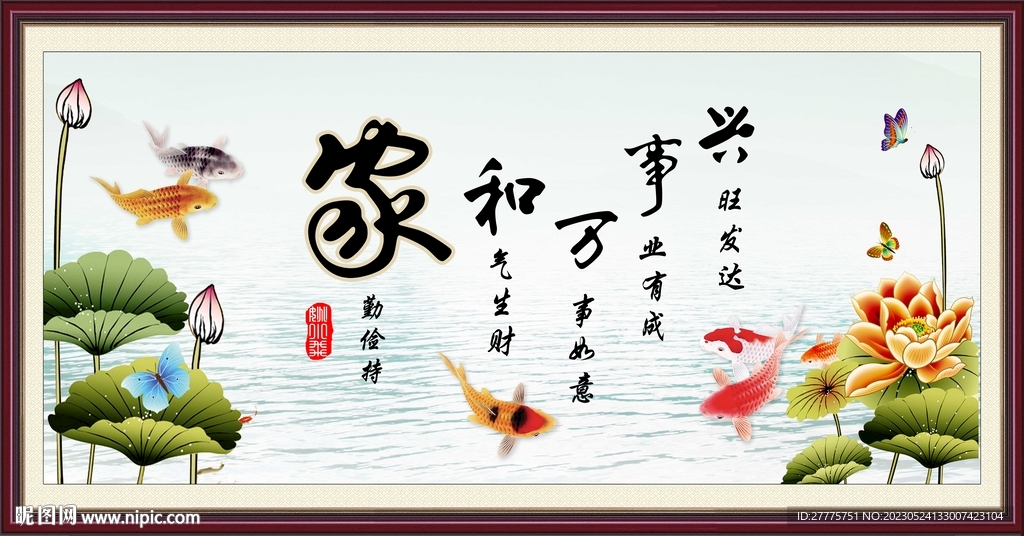 家和万事兴
勤俭持
气生财
事如意
业有成
旺发达
昵图网 www.nipic.com
ID:27775751 NO:20230524133007423104